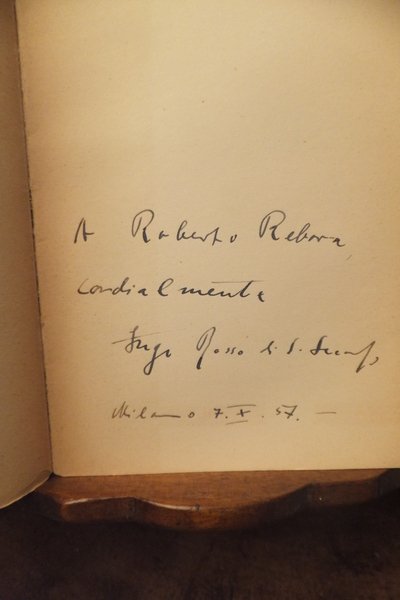 A Roberto Rebora,
cordialmente
Rosso di S. Secondo
Milano 7. X. 57. —